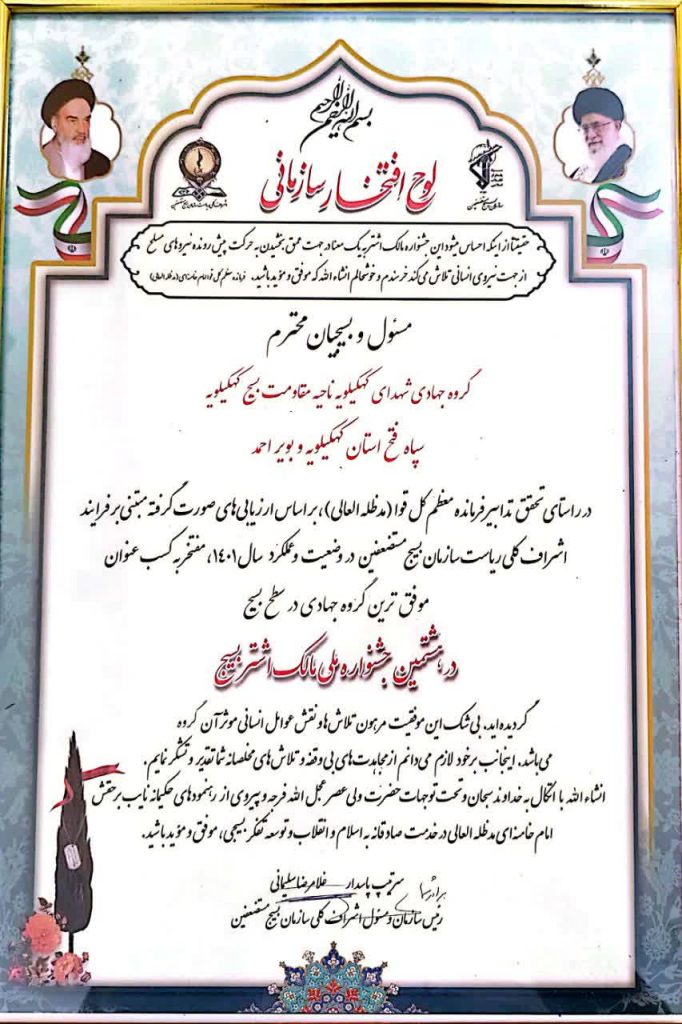 بسم الله الرحمن الرحیم
لوح افتخار سازمانی
حقیقتا از اینکه احساس میشود این جشنواره مالک اشتر به یک معنا در جهت عمق بخشیدن به حرکت پیش رونده نیروهای مسلح
از جهت نیروی انسانی تلاش می‌کند خرسندم و خوشحالم انشاء الله که موفق و مؤید باشید. فرمانده معظم کل قوا امام خامنه‌ای (مدظله العالی)
مسئول و بسیجیان محترم
گروه جهادی شهدای کهگیلویه ناحیه مقاومت بسیج کهگیلویه
سپاه فتح استان کهگیلویه و بویر احمد
در راستای تحقق تدابیر فرمانده معظم کل قوا (مدظله العالی)، بر اساس ارزیابی های صورت گرفته مبتنی بر فرایند
اشراف کلی ریاست سازمان بسیج مستضعفین در وضعیت و عملکرد سال ۱۴۰۱، مفتخر به کسب عنوان
موفق ترین گروه جهادی در سطح بسیج
در هشتمین جشنواره ملی مالک اشتر بسیج
گردیده‌اید. بی شک این موفقیت مرهون تلاش ها و نقش عوامل انسانی موثر آن گروه
می‌باشد. اینجانب بر خود لازم می‌دانم از مجاهدت های بی وقفه و تلاش های مخلصانه شما تقدیر و تشکر نمایم.
انشاء الله با اتکال به خداوند سبحان و تحت توجهات حضرت ولی عصر عجل الله فرجه و پیروی از رهنمودهای حکیمانه نایب بر حقش
امام خامنه‌ای مدظله العالی در خدمت صادقانه به اسلام و انقلاب و توسعه تفکر بسیجی، موفق و مؤید باشید.
برادر شما
سرتیپ پاسدار غلامرضا سلیمانی
رئیس سازمان و مسئول اشراف کلی سازمان بسیج مستضعفین